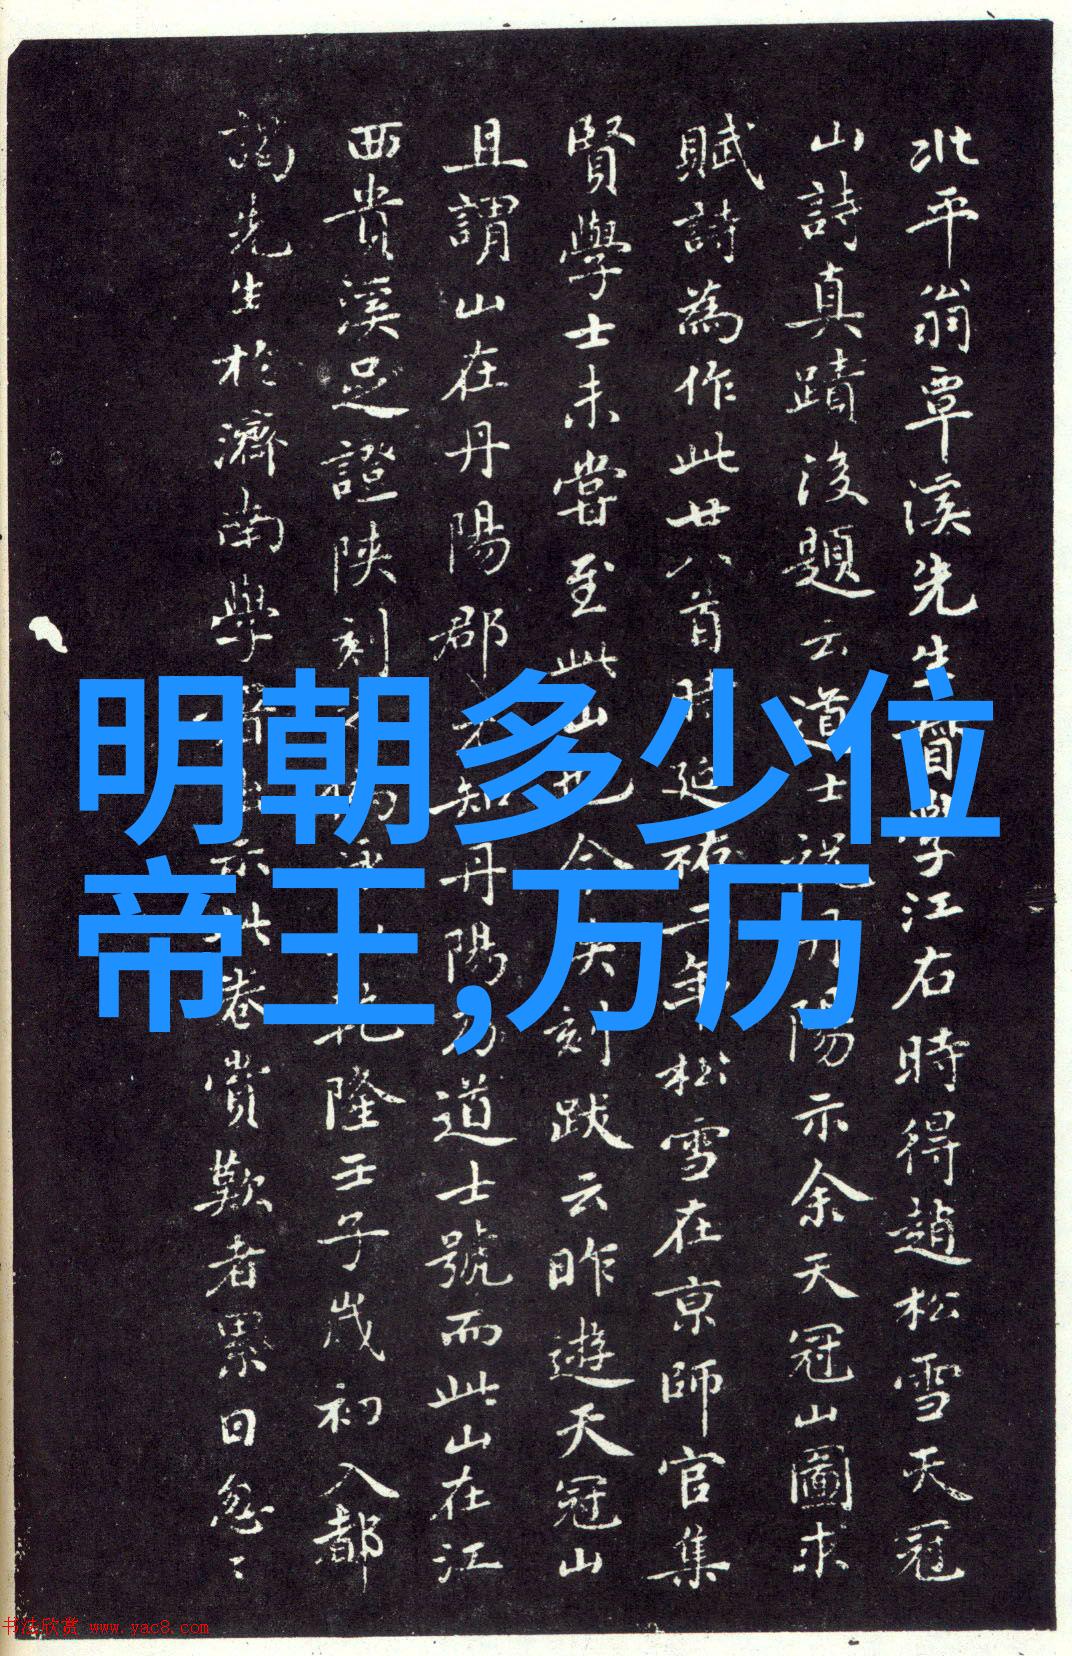 北平翁覃溪先生督學江右時得趙松雪天冠
山詩真蹟後題云道士祝丹陽示余天冠山圖求
賦詩為作此廿八首時延祐二年松雪在京師官集
賢學士未嘗至此山也今陝刻跋云昨遊天冠山
且謂山在丹陽郡不知丹陽乃道士號而此山在江
西貴溪足證陝刻 乾隆壬子歲初入都
謁先生於濟南學 出示此卷賞歎者累日忽〻
明朝多少位
帝王,万历
书法欣赏 www.yac8.com